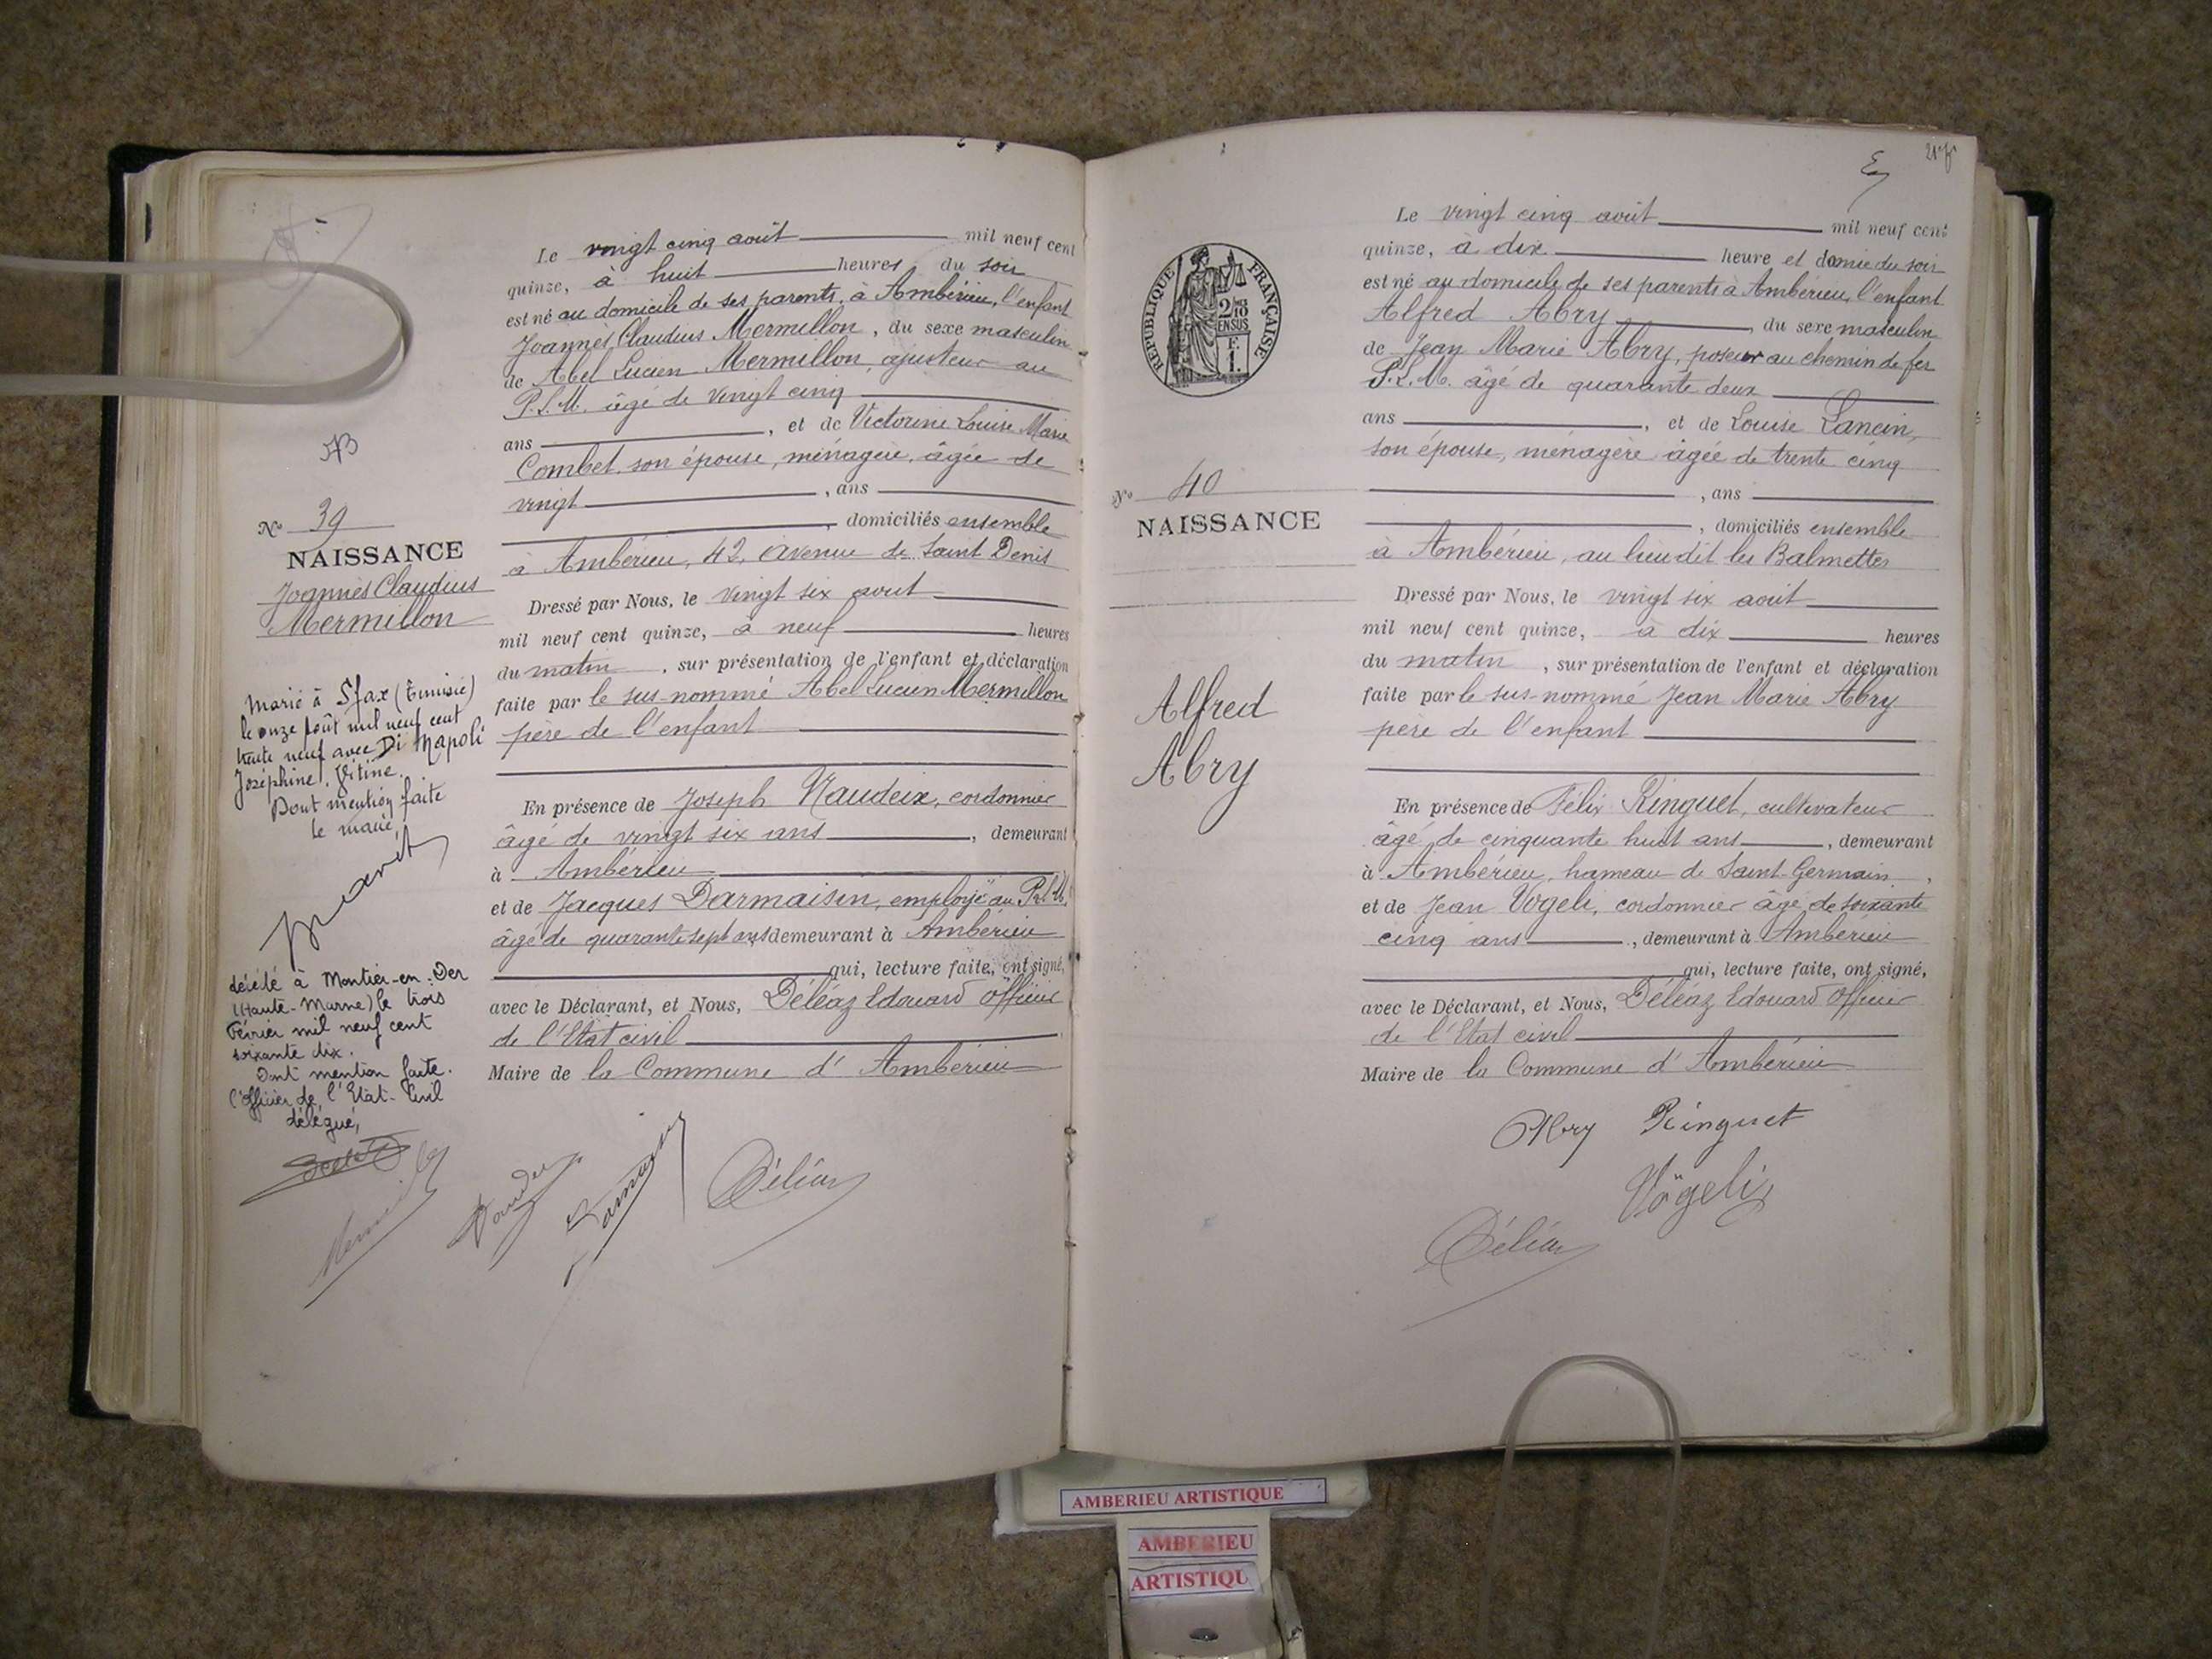 Nº 39
NAISSANCE
Joannès Claudius
Mermillon
Marié à Sfax (Tunisie)
le onze Août mil neuf cent
trente neuf avec Di Napoli
Joséphine, Vitine.
Dont mention faite
le maire,
décédé à Montier-en-Der
(Haute-Marne) le trois
Février mil neuf cent
soixante dix.
Dont mention faite.
l'Officier de l'Etat-Civil
délégué,
Le vingt cinq août mil neuf cent
quinze, à huit heures du soir
est né au domicile de ses parents, à Ambérieu, l'enfant
Joannès Claudius Mermillon, du sexe masculin
de Abel Lucien Mermillon, ajusteur au
P.L.M. âgé de vingt cinq
ans, et de Victorine Louise Marie
Combet, son épouse, ménagère, âgée de
vingt, ans
, domiciliés ensemble
à Ambérieu, 42, Avenue de Saint Denis
Dressé par Nous, le vingt six août
mil neuf cent quinze, à neuf heures
du matin, sur présentation de l'enfant et déclaration
faite par le sus-nommé Abel Lucien Mermillon
père de l'enfant
En présence de Joseph Naudeix, cordonnier
âgé de vingt six ans, demeurant
à Ambérieu
et de Jacques Darmaisin, employé au P.L.M.
âgé de quarante sept ans demeurant à Ambérieu
qui, lecture faite, ont signé,
avec le Déclarant, et Nous, Déléaz Edouard Officier
de l'Etat civil
Maire de la Commune d'Ambérieu
Déléaz
RÉPUBLIQUE FRANÇAISE
2/10
EN SUS
F.
1.
Nº 40
NAISSANCE
Alfred
Abry
Le vingt cinq août mil neuf cent
quinze, à dix heure et demie du soir
est né au domicile de ses parents à Ambérieu, l'enfant
Alfred Abry, du sexe masculin
de Jean Marie Abry, poseur au chemin de fer
P.L.M. âgé de quarante deux
ans, et de Louise Lancin,
son épouse, ménagère âgée de trente cinq
, ans
, domiciliés ensemble
à Ambérieu, au lieu dit les Balmettes
Dressé par Nous, le vingt six août
mil neuf cent quinze, à dix heures
du matin, sur présentation de l'enfant et déclaration
faite par le sus-nommé Jean Marie Abry
père de l'enfant
En présence de Félix Ringuet, cultivateur
âgé de cinquante huit ans, demeurant
à Ambérieu, hameau de Saint-Germain,
et de Jean Vögeli, cordonnier âgé de soixante
cinq ans, demeurant à Ambérieu
qui, lecture faite, ont signé,
avec le Déclarant, et Nous, Déléaz Edouard Officier
de l'Etat civil
Maire de la Commune d'Ambérieu
Abry Ringuet
Vögeli
Déléaz
AMBERIEU ARTISTIQUE
AMBERIEU
ARTISTIQU